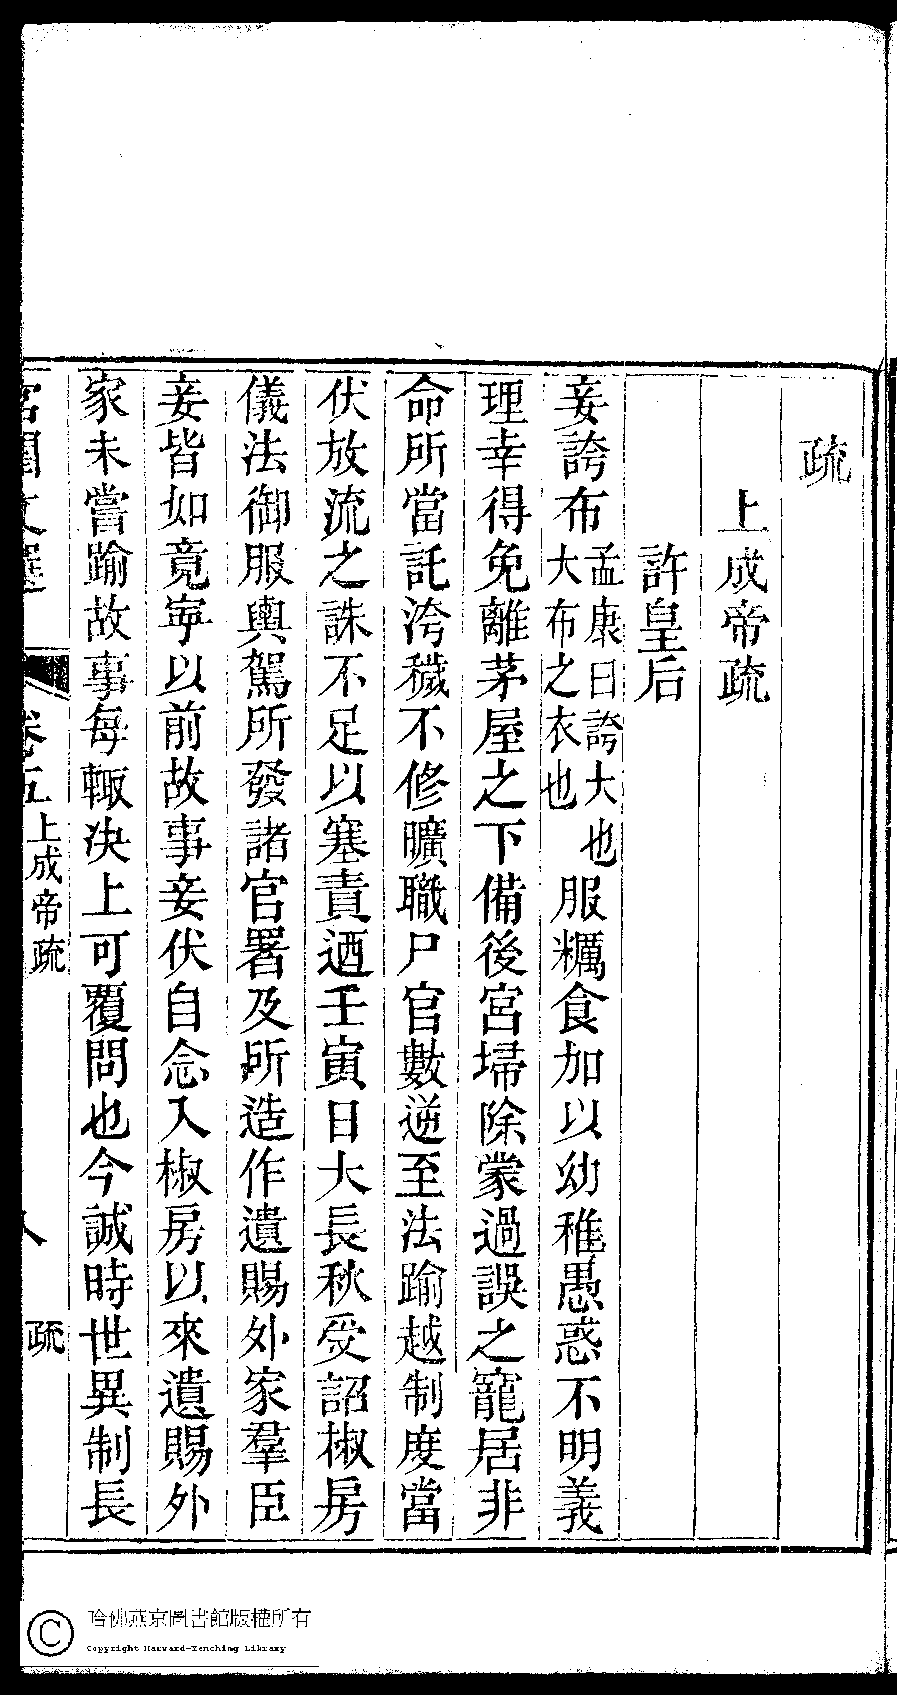 疏
上成帝疏
許皇后
妾誇布孟康曰誇大也大布之衣也服糲食加以幼稚愚惑不明義
理幸得免離茅屋之下備後宮埽除蒙過誤之寵居非
命所當託洿穢不修曠職尸官數逆至法踰越制度當
伏放流之誅不足以塞責迺壬寅日大長秋受詔椒房
儀法御服輿駕所發諸官署及所造作遺賜外家羣臣
妾皆如竟寧以前故事妾伏自念入椒房以來遺賜外
家未嘗踰故事每輙決上可覆問也今誠時世異制長
宮閨文選 卷五 上成帝疏 八 疏
哈佛燕京圖書館版權所有
Copyright Harvard-Yenching Library